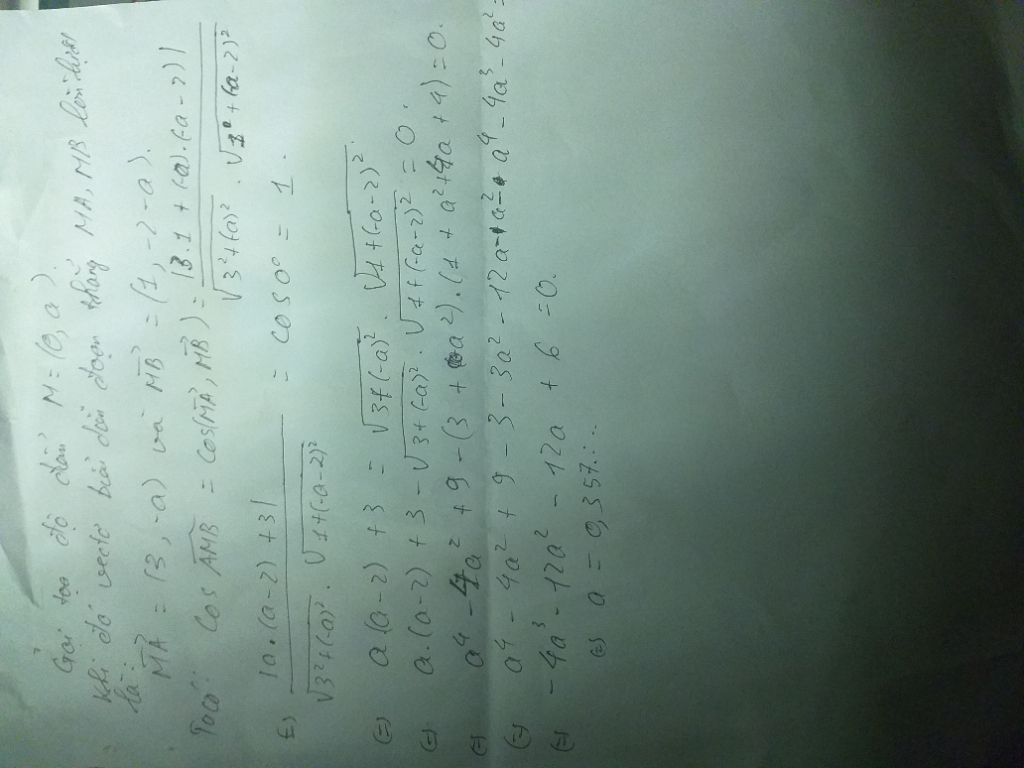 Gọi tọa độ điểm M = (0, a).
Khi đó vectơ biểu diễn đoạn thẳng MA, MB lần lượt
là:
MA = (3, -a) và MB = (1, -2 - a).
Ta có: cos AMB = cos(MA, MB) = |3.1 + (-a).(-a-2)| / √3²+(-a)² . √1²+(-a-2)²
(=) |a.(a-2) + 3| / √3²+(-a)² . √1+(-a-2)² = cos 0° = 1.
(=) a.(a-2) + 3 = √3+(-a)² . √1+(-a-2)².
(=) a.(a-2) + 3 - √3+(-a)² . √1+(-a-2)² = 0.
(=) a⁴ - 4a² + 9 - (3 + a²).(1 + a² + 4a + 4) = 0.
(=) a⁴ - 4a² + 9 - 3 - 3a² - 12a - a² - a⁴ - 4a³ - 4a² =
(=) -4a³ - 12a² - 12a + 6 = 0.
(=) a = 0,357...